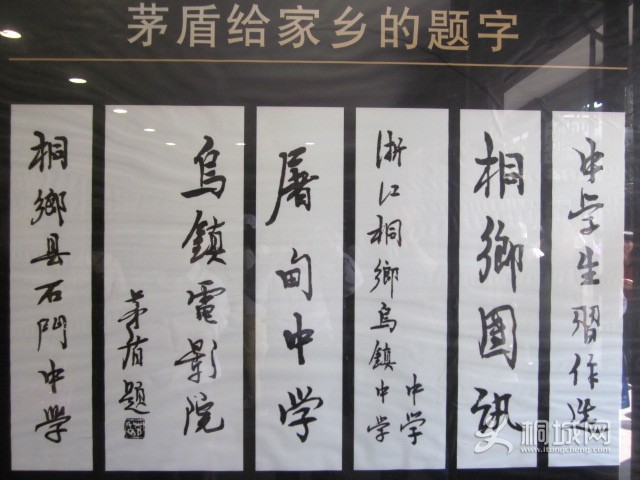 茅盾给家乡的题字
中学生習作选
桐鄉訊
中学
浙江桐鄉烏鎮中学
屠甸中学
烏鎮電影院
茅盾题
桐鄉县石門中學
桐城网
www.itongcheng.com